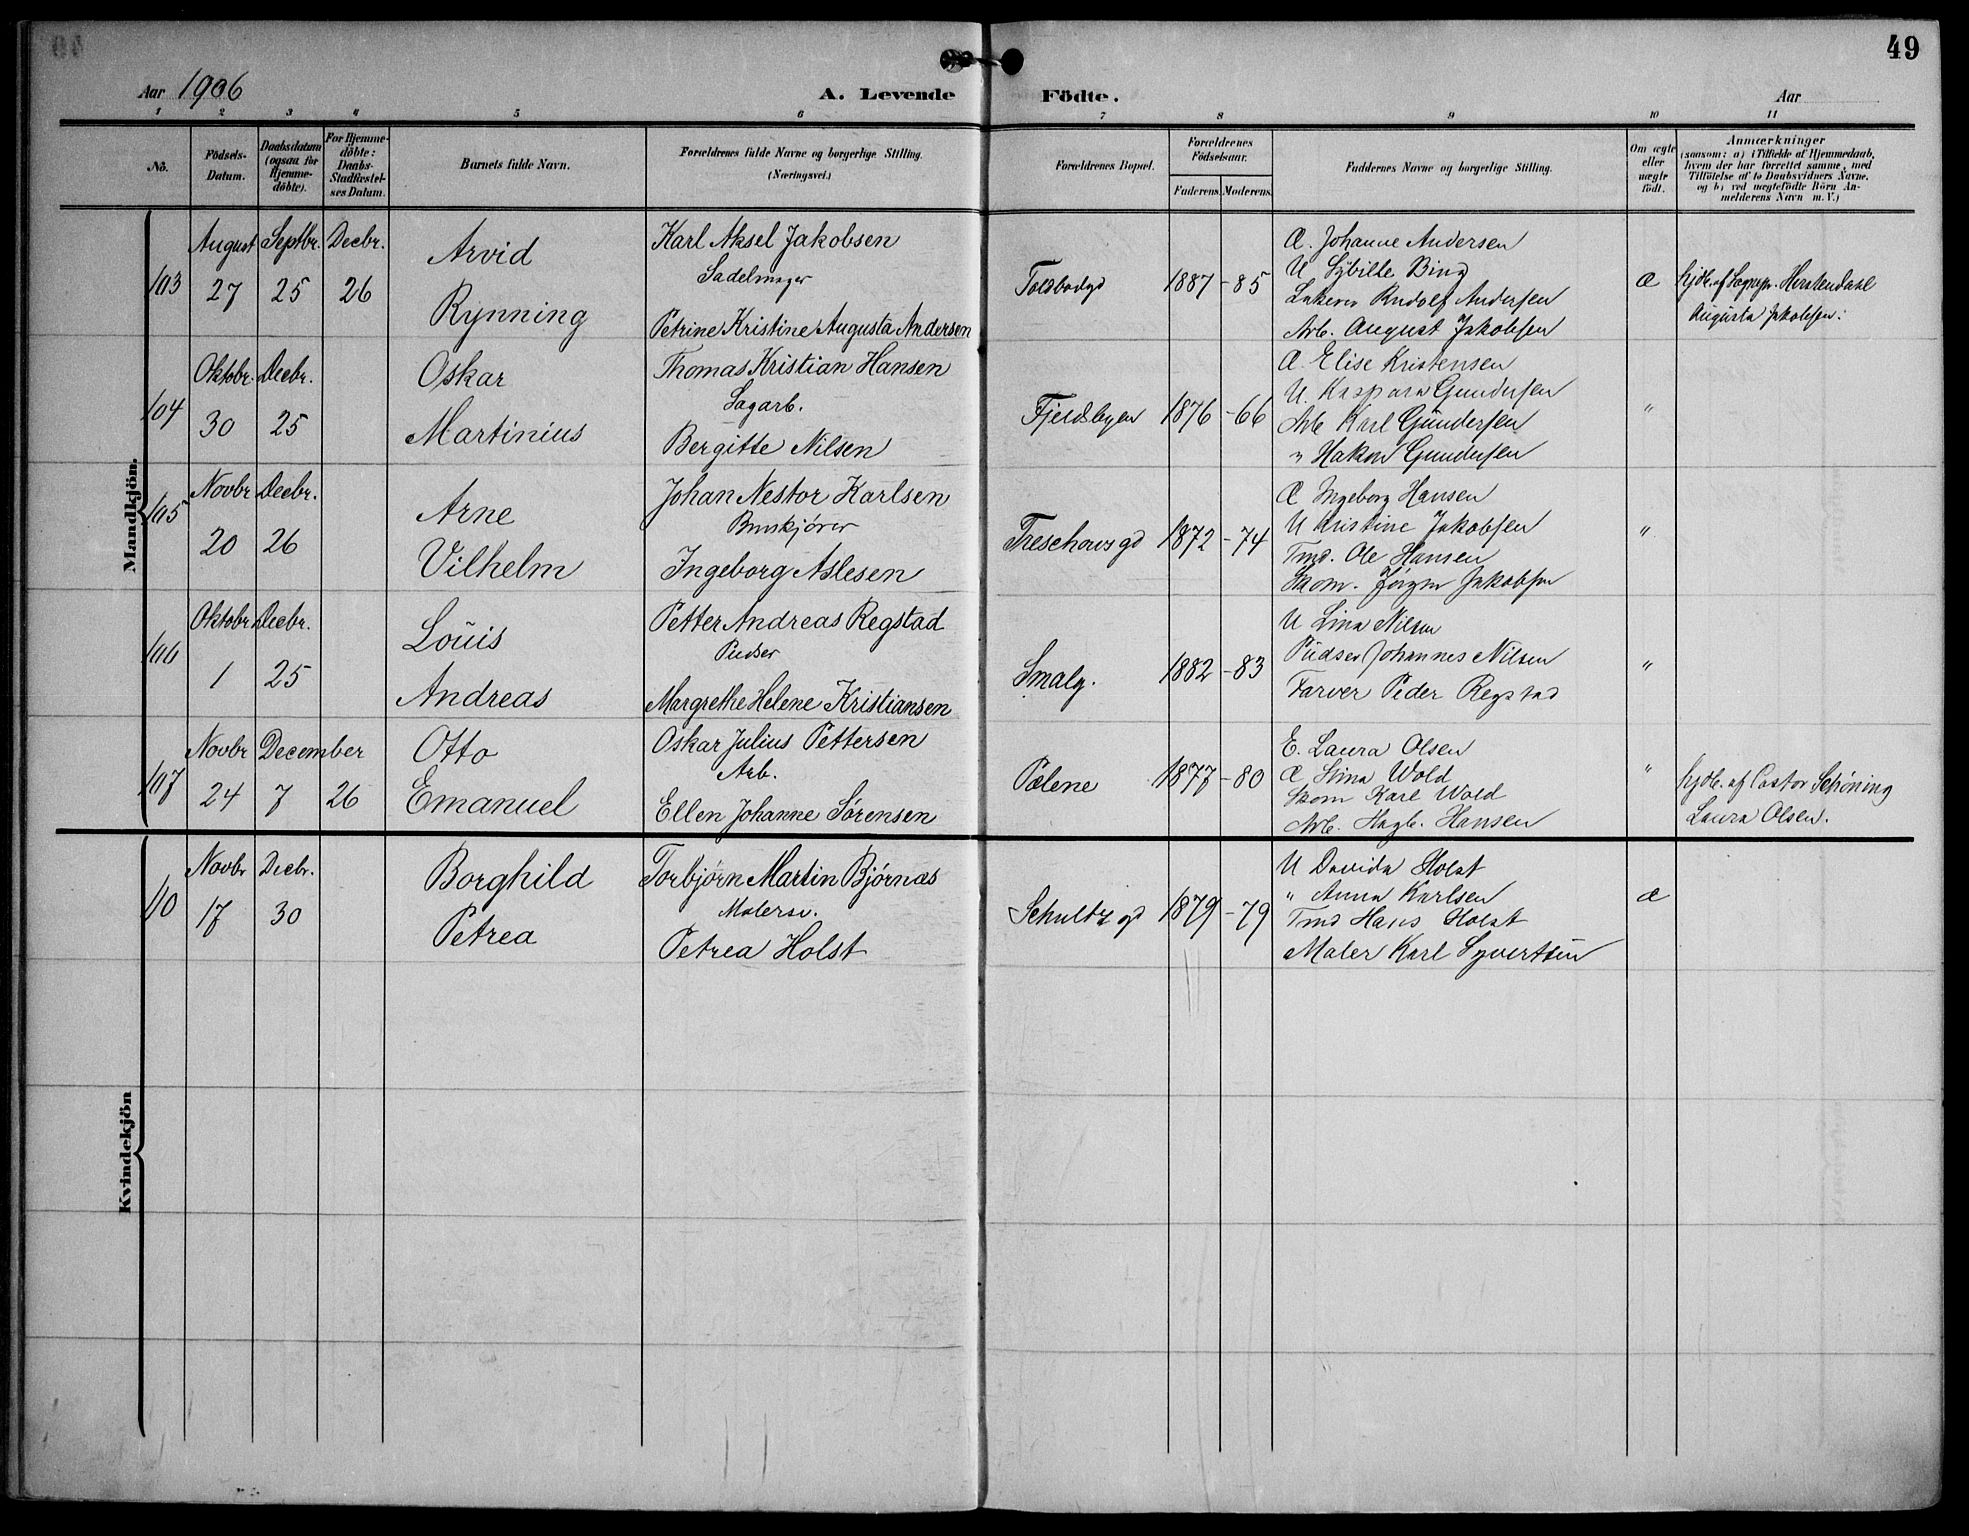 49
Aar 1906
A. Levende Födte.
Aar
1 2 3 4 5 6 7 8 9 10 11
No.
Födsels-
Datum.
Daabsdatum
(ogsaa for
Hjemme-
döbte).
For Hjemme-
döbte:
Daabs-
Stadfæstel-
ses Datum.
Barnets fulde Navn.
Forældrenes fulde Navne og borgerlige Stilling.
(Næringsvei.)
Forældrenes Bopæl.
Forældrenes
Födselsaar.
Faderens. Moderens.
Faddernes Navne og borgerlige Stilling.
Om ægte
eller
uægte
födt.
Anmærkninger
(saasom: a) i Tilfælde af Hjemmedaab,
hvem der har forrettet samme, med
Tilföielse af to Daabsvidners Navne.
og b) ved uægtefödte Börn An-
melderens Navn m. V.)
Mandkjön.
103
August Septbr. Decbr.
27 25 26
Arvid
Rynning
Karl Aksel Jakobsen
Sadelmager
Petrine Kristine Augusta Andersen
Toldbodgd
1887 - 85
Æ. Johanne Andersen
U. Sybille Bing
Rudolf Andersen
Arb. August Jakobsen
Æ
Hjdb. af Sognepr. Herstendahl
Augusta Jakobsen.
104
Oktobr. Decbr.
30 25
Oskar
Martinius
Thomas Kristian Hansen
Sagarb.
Bergitte Nilsen
Fjeldbyen
1876 - 66
Æ. Elise Kristensen
U. Kaspara Gundersen
Arb. Karl Gundersen
" Hakon Gundersen
"
105
Novbr. Decbr.
20 26
Arne
Vilhelm
Johan Nestor Karlsen
Bruskjører
Ingeborg Aslesen
Treschowsgd
1872 - 74
Æ Ingeborg Hansen
U Kristine Jakobsen
Tmd. Ole Hansen
Skom. Jørgen Jakobsen
"
106
Oktobr. Decbr.
1 25
Louis
Andreas
Petter Andreas Regstad
Pudser
Margrethe Helene Kristiansen
Smalg.
1882 - 83
U Lina Nilsen
Pudser Johannes Nilsen
Farver Peder Regstad
"
107
Novbr December
24 7 26
Otto
Emanuel
Oskar Julius Pettersen
Arb.
Ellen Johanne Sørensen
Pælene
1877 - 80
E. Laura Olsen
Æ Stina Wold
Skom Karl Wold
Arb. Hagb. Hansen
"
Hjdb. af Pastor Schøning
Laura Olsen.
Kvindekjön
110
Novbr Decbr.
17 30
Borghild
Petrea
Torbjørn Martin Bjørnæs
Malersv.
Petrea Holst
Schultz gd
1879 - 79
U Davida Holst
" Anna Karlsen
Tmd Hans Holst
Maler Karl Syvertsen
Æ